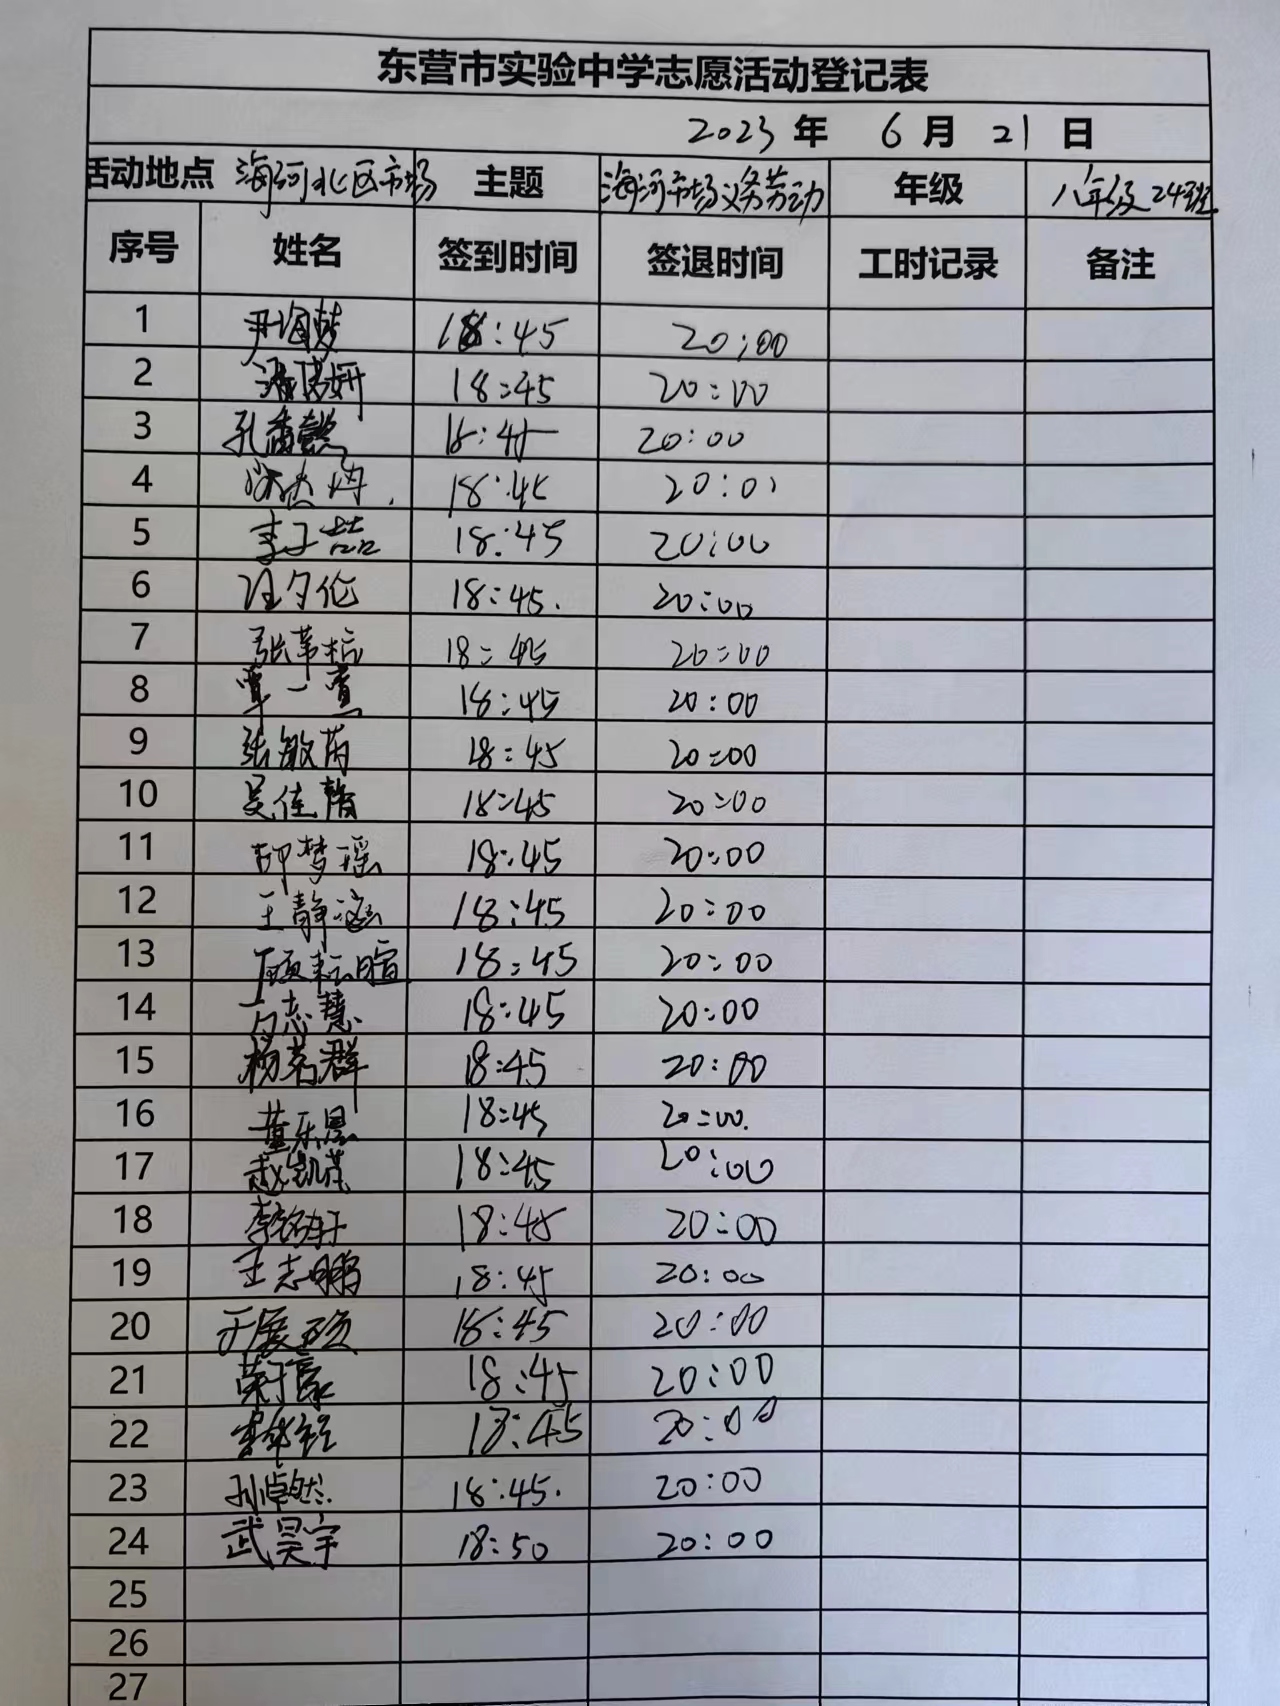 东营市实验中学志愿活动登记表
2023 年 6 月 21 日
活动地点 海河北区市场 主题 海河市场义务劳动 年级 八年级24班
序号 姓名 签到时间 签退时间 工时记录 备注
1 18:45 20:00
2 18:45 20:00
3 孔 18:45 20:00
4 18:45 20:00
5 李子喆 18:45 20:00
6 汪夕伦 18:45. 20:00
7 张 18:45 20:00
8 覃一 18:45 20:00
9 张敏芮 18:45 20:00
10 吴佳 18:45 20:00
11 胡梦瑶 18:45 20:00
12 王静涵 18:45 20:00
13 顾耘暄 18:45 20:00
14 方志慧 18:45 20:00
15 杨茗群 18:45 20:00
16 董乐 18:45 20:00.
17 赵凯 18:45 20:00
18 李铭轩 18:45 20:00
19 王志鹏 18:45 20:00
20 18:45 20:00
21 18:45 20:00
22 18:45 20:00
23 孙卓然 18:45. 20:00
24 武昊宇 18:50 20:00
25
26
27